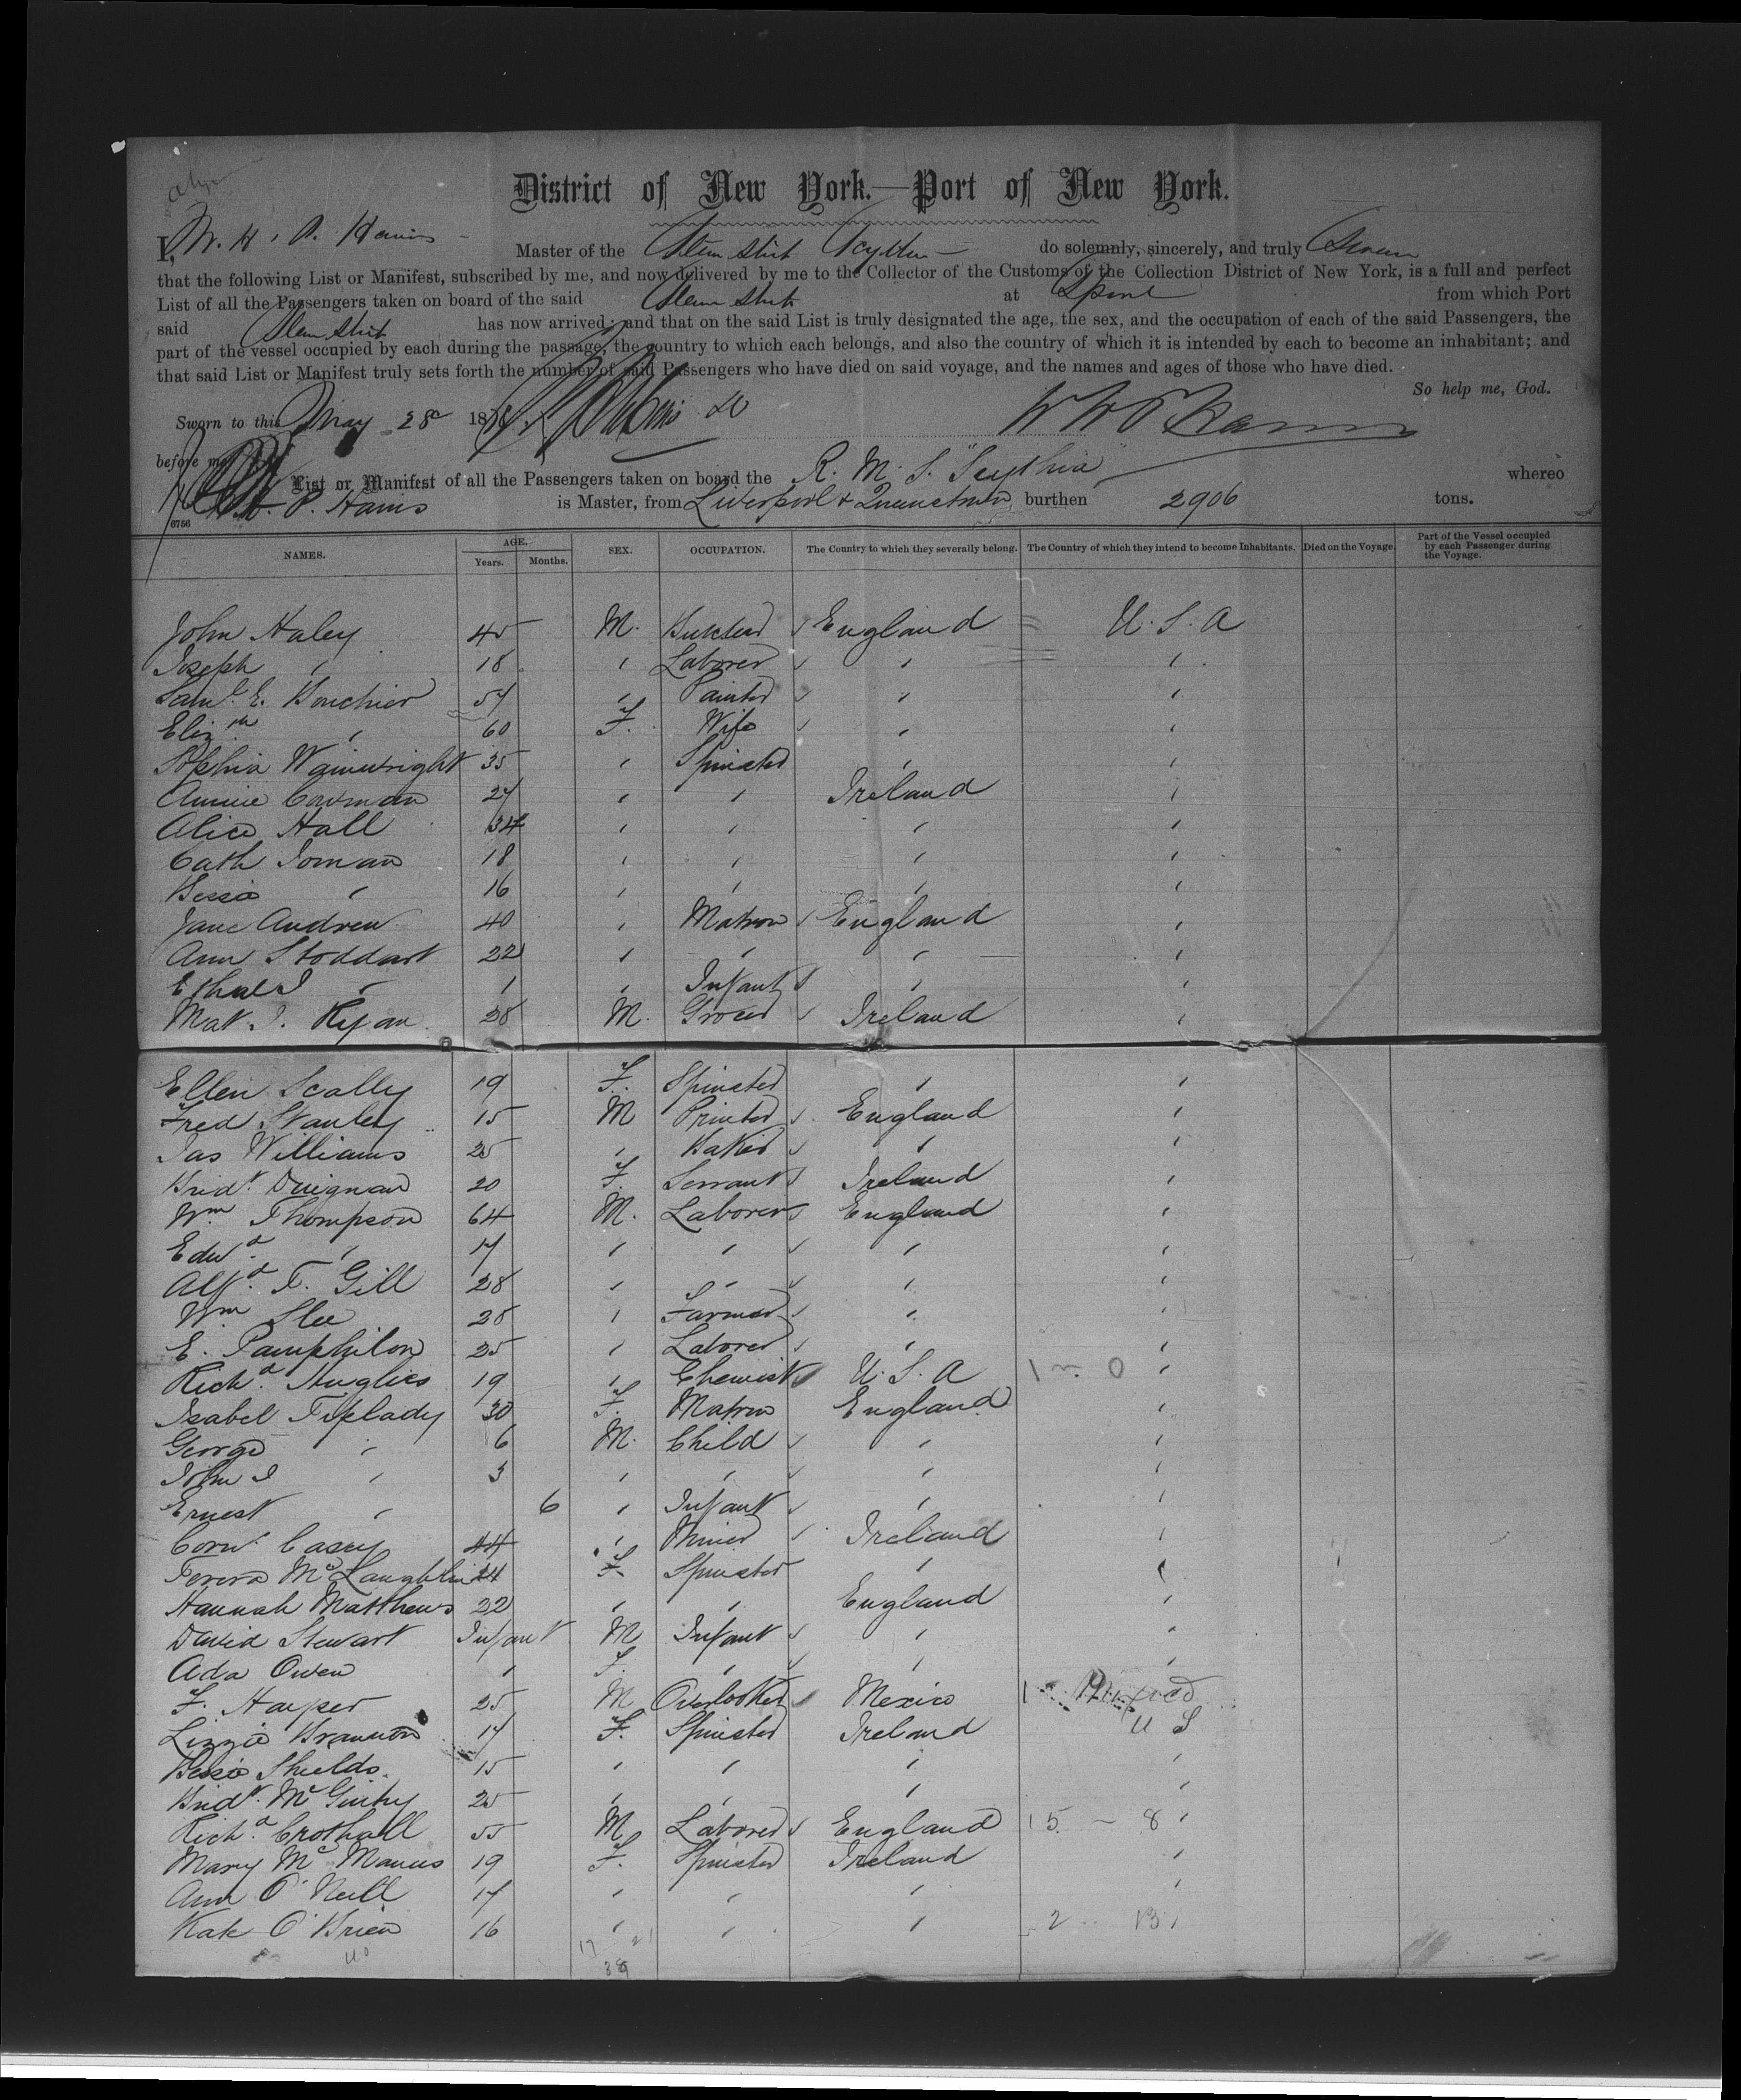 District of New York.—Port of New York.
I, W. H. P. Hains Master of the Steam Ship Scythia do solemnly, sincerely, and truly Swear
that the following List or Manifest, subscribed by me, and now delivered by me to the Collector of the Customs of the Collection District of New York, is a full and perfect
List of all the Passengers taken on board of the said Steam Ship at Lpool from which Port
said Steam Ship has now arrived; and that on the said List is truly designated the age, the sex, and the occupation of each of the said Passengers, the
part of the vessel occupied by each during the passage, the country to which each belongs, and also the country of which it is intended by each to become an inhabitant; and
that said List or Manifest truly sets forth the number of said Passengers who have died on said voyage, and the names and ages of those who have died.
So help me, God.
Sworn to this May 28 187 W H P Hains
before me
List or Manifest of all the Passengers taken on board the R. M. S. "Scythia" whereo
P. Hains is Master, from Liverpool & Queenstown, burthen 2906 tons.
6756
NAMES. AGE. Years. Months. SEX. OCCUPATION. The Country to which they severally belong. The Country of which they intend to become Inhabitants. Died on the Voyage. Part of the Vessel occupied by each Passenger during the Voyage.
John Haley 45 M. England U. S. A
Joseph " 18 " Laborer " "
Saml. E. Bouchier 57 " Painter " "
Elizth " 60 F. Wife " "
Sophia Wainwright 35 " Spinster " "
Annie Cowman 27 " " Ireland "
Alice Hall 34 " " " "
Cath Toman 18 " " " "
Bessie " 16 " " " "
Jane Andrew 40 " Matron England "
Ann Stoddart 22 " " " "
Ethel J " 1 " Infant " "
Mat. J. Ryan 28 M. Grocer Ireland "
Ellen Scally 19 F. Spinster " "
Fred Stanley 15 M Printer England "
Jas Williams 25 " Baker " "
Bridt. Duignan 20 F. Servant Ireland "
Wm. Thompson 64 M. Laborer England "
Edwd. " 17 " " " "
Alfd. T. Gill 28 " " " "
Wm Slee 28 " Farmer " "
E. Pamphilon 25 " Laborer " "
Richd. Hughes 19 " Chemist U. S. A 1 ~ 0 "
Isabel Tiplady 30 F. Matron England "
George " 6 M. Child " "
John J " 3 " " " "
Ernest " 6 " Infant " "
Corns. Casey 44 " Miner Ireland "
Teresa McLaughlin 24 F. Spinster " "
Hannah Matthews 22 " " England "
David Stewart Infant M Infant " "
Ada Owen " F. " " "
F. Harper 25 M Overlooker Mexico 1 ~ Mexico
Lizzie Brannon 17 F. Spinster Ireland U S
Bessie Shields 15 " " " "
Bridt. McGinty 25 " " " "
Richd. Crothall 55 M Laborer England 15 ~ 8 "
Mary McManus 19 F. Spinster Ireland "
Ann O'Neill 17 " " " "
Kate O'Brien 16 " " " 2 13 "
40 17 21
38